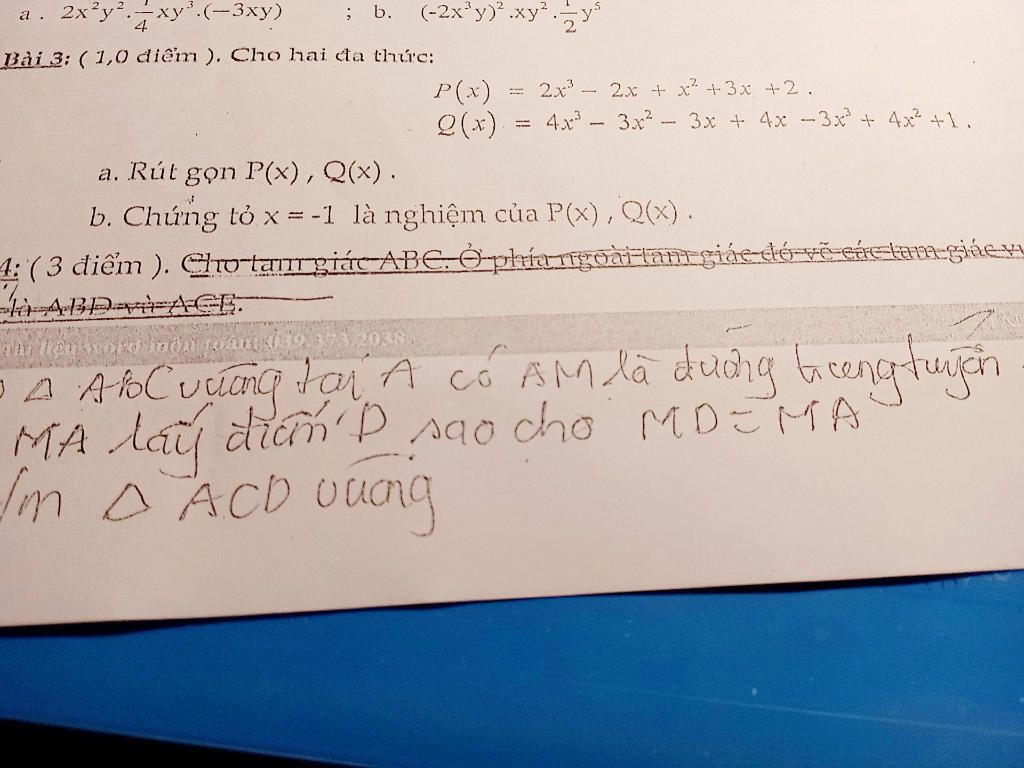 a. 2x²y².¼xy³.(−3xy) ; b. (-2x³y)².xy².½y⁵
Bài 3: ( 1,0 điểm ). Cho hai đa thức:
P(x) = 2x³ − 2x + x² + 3x + 2 .
Q(x) = 4x³ − 3x² − 3x + 4x − 3x³ + 4x² + 1 .
a. Rút gọn P(x) , Q(x) .
b. Chứng tỏ x = -1 là nghiệm của P(x) , Q(x) .
4: ( 3 điểm ). Cho tam giác ABC. Ở phía ngoài tam giác đó vẽ các tam giác
là ABD và ACE.
Tài liệu word môn toán: 039.373.2038
Δ ABC vuông tại A có AM là đường trung tuyến
MA lấy điểm D sao cho MD = MA
Δ ACD vuông